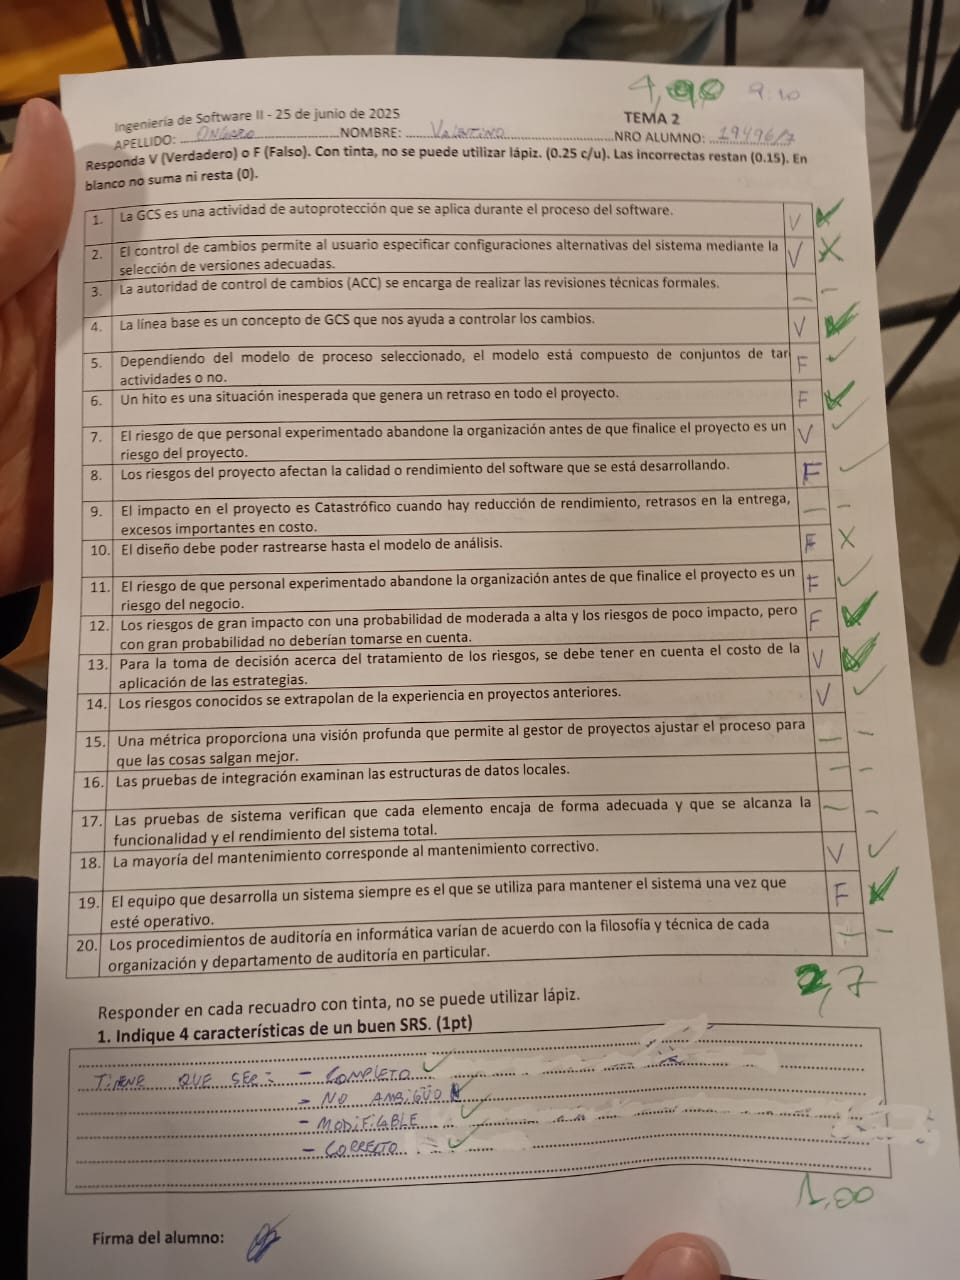 4,90 9:10
Ingeniería de Software II - 25 de junio de 2025 TEMA 2
APELLIDO: ONGARO NOMBRE: VALENTINO NRO ALUMNO: 19496/7
Responda V (Verdadero) o F (Falso). Con tinta, no se puede utilizar lápiz. (0.25 c/u). Las incorrectas restan (0.15). En
blanco no suma ni resta (0).
1. La GCS es una actividad de autoprotección que se aplica durante el proceso del software. V
2. El control de cambios permite al usuario especificar configuraciones alternativas del sistema mediante la V
selección de versiones adecuadas.
3. La autoridad de control de cambios (ACC) se encarga de realizar las revisiones técnicas formales. –
4. La línea base es un concepto de GCS que nos ayuda a controlar los cambios. V
5. Dependiendo del modelo de proceso seleccionado, el modelo está compuesto de conjuntos de tar F
actividades o no.
6. Un hito es una situación inesperada que genera un retraso en todo el proyecto. F
7. El riesgo de que personal experimentado abandone la organización antes de que finalice el proyecto es un V
riesgo del proyecto.
8. Los riesgos del proyecto afectan la calidad o rendimiento del software que se está desarrollando. F
9. El impacto en el proyecto es Catastrófico cuando hay reducción de rendimiento, retrasos en la entrega, –
excesos importantes en costo.
10. El diseño debe poder rastrearse hasta el modelo de análisis. F
11. El riesgo de que personal experimentado abandone la organización antes de que finalice el proyecto es un F
riesgo del negocio.
12. Los riesgos de gran impacto con una probabilidad de moderada a alta y los riesgos de poco impacto, pero F
con gran probabilidad no deberían tomarse en cuenta.
13. Para la toma de decisión acerca del tratamiento de los riesgos, se debe tener en cuenta el costo de la V
aplicación de las estrategias.
14. Los riesgos conocidos se extrapolan de la experiencia en proyectos anteriores. V
15. Una métrica proporciona una visión profunda que permite al gestor de proyectos ajustar el proceso para –
que las cosas salgan mejor.
16. Las pruebas de integración examinan las estructuras de datos locales. –
17. Las pruebas de sistema verifican que cada elemento encaja de forma adecuada y que se alcanza la –
funcionalidad y el rendimiento del sistema total.
18. La mayoría del mantenimiento corresponde al mantenimiento correctivo. V
19. El equipo que desarrolla un sistema siempre es el que se utiliza para mantener el sistema una vez que F
esté operativo.
20. Los procedimientos de auditoría en informática varían de acuerdo con la filosofía y técnica de cada –
organización y departamento de auditoría en particular.
2,7
Responder en cada recuadro con tinta, no se puede utilizar lápiz.
1. Indique 4 características de un buen SRS. (1pt)
TIENE QUE SER: - COMPLETO
- NO AMBIGÜO
- MODIFICABLE
- CORRECTO
1,00
Firma del alumno: